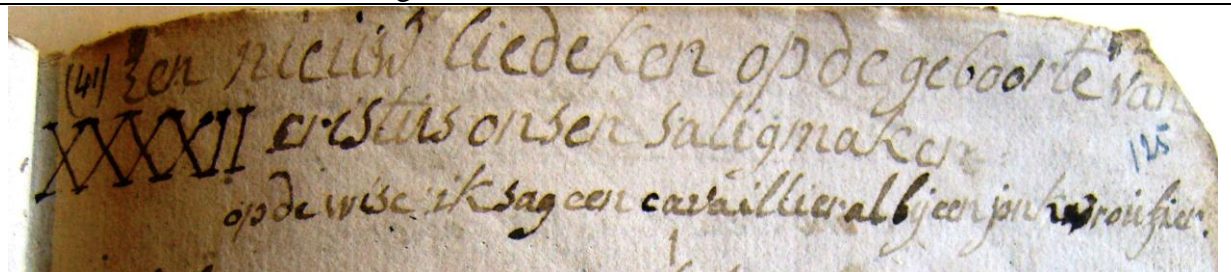 (41) Een nieuw liedeken op de geboorte van
XXXXII cristus onsen saligmaker
125
op de wise ik sag een cavaillier al bij een